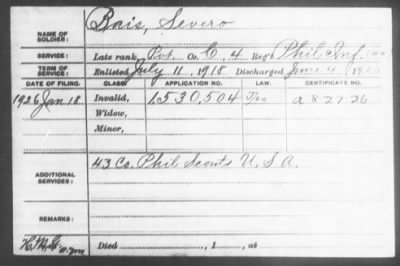 NAME OF SOLDIER: Rais, Severo
SERVICE: Late rank, Pvt. Co. C, 4 Reg't Phil Inf.
TERM OF SERVICE: Enlisted July 11, 1918 Discharged June 4
DATE OF FILING. CLASS. APPLICATION NO. LAW. CERTIFICATE NO.
1926 Jan 18 Invalid, 1,530,504 a 82726
Widow,
Minor,
ADDITIONAL SERVICES: 43 Co. Phil Scouts U.S.A.
REMARKS:
Died , 1 , at